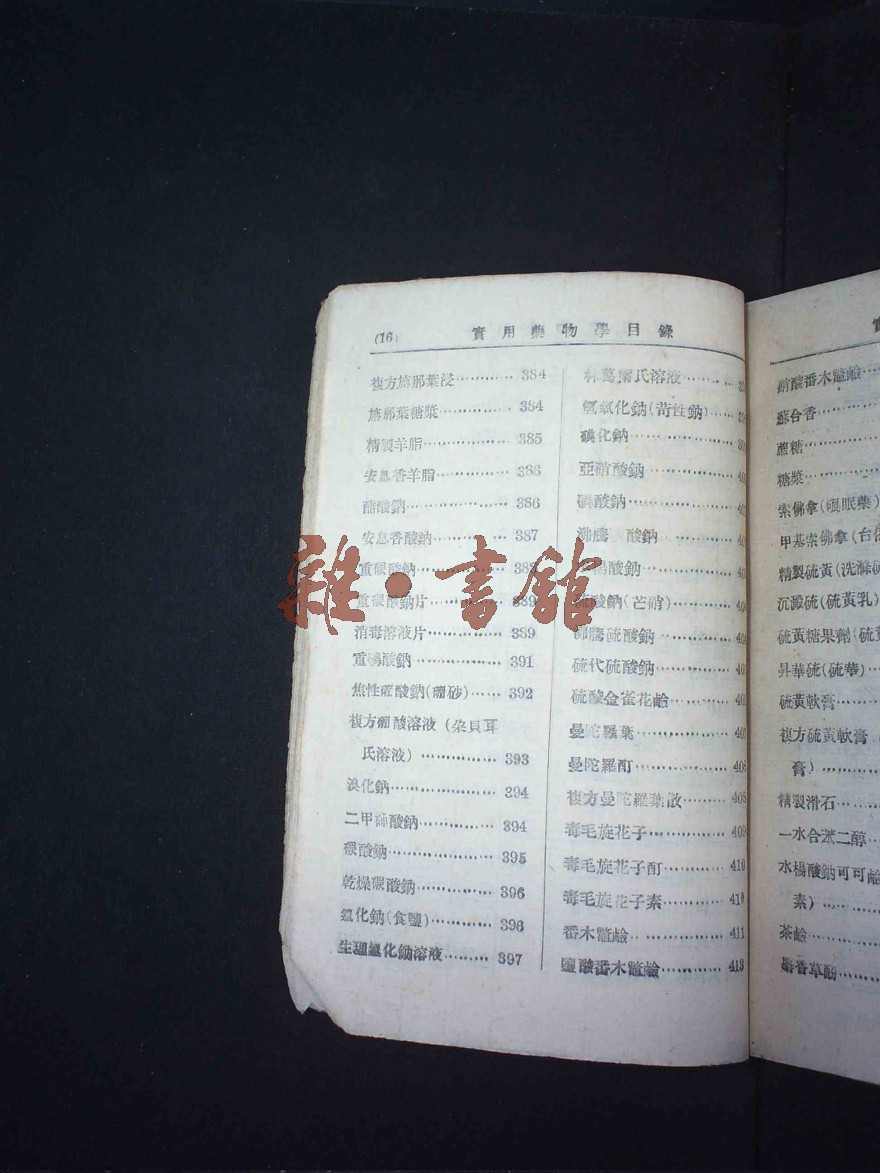 (16)
實用藥物學目錄
複方旃那葉浸 384
旃那葉糖漿 384
精製羊脂 385
安息香羊脂 386
醋酸鈉 386
安息香酸鈉 387
重碳酸鈉
重碳酸鈉片 389
消毒溶液片 389
重酸鈉 391
焦性硼酸鈉(硼砂) 392
複方硼酸溶液(朶貝耳
氏溶液) 393
溴化鈉 394
二甲砷酸鈉 394
碳酸鈉 395
乾燥碳酸鈉 396
氯化鈉(食鹽) 396
生理氯化鈉溶液 397
林葛爾氏溶液
氫氧化鈉(苛性鈉)
碘化鈉
亞硝酸鈉
磷酸鈉
沸騰酸鈉
酸鈉
硫酸鈉(芒硝)
沸騰硫酸鈉
硫代硫酸鈉
硫酸金雀花鹼
曼陀羅葉
曼陀羅酊 408
複方曼陀羅葉散 408
毒毛旋花子 409
毒毛旋花子酊 410
毒毛旋花子素 410
番木鼈鹼 411
鹽酸番木鼈鹼 413
硝酸番木鼈鹼
蘇合香
蔗糖
糖漿
索佛拿(催眠藥)
甲基索佛拿(台
精製硫黃(洗滌
沉澱硫(硫黃乳)
硫黃糖果劑(硫
昇華硫(硫華)
硫黃軟膏
複方硫黃軟膏
膏)
精製滑石
一水合萜二醇
水楊酸鈉可可鹼
素)
茶鹼
麝香草酚
雜·書館